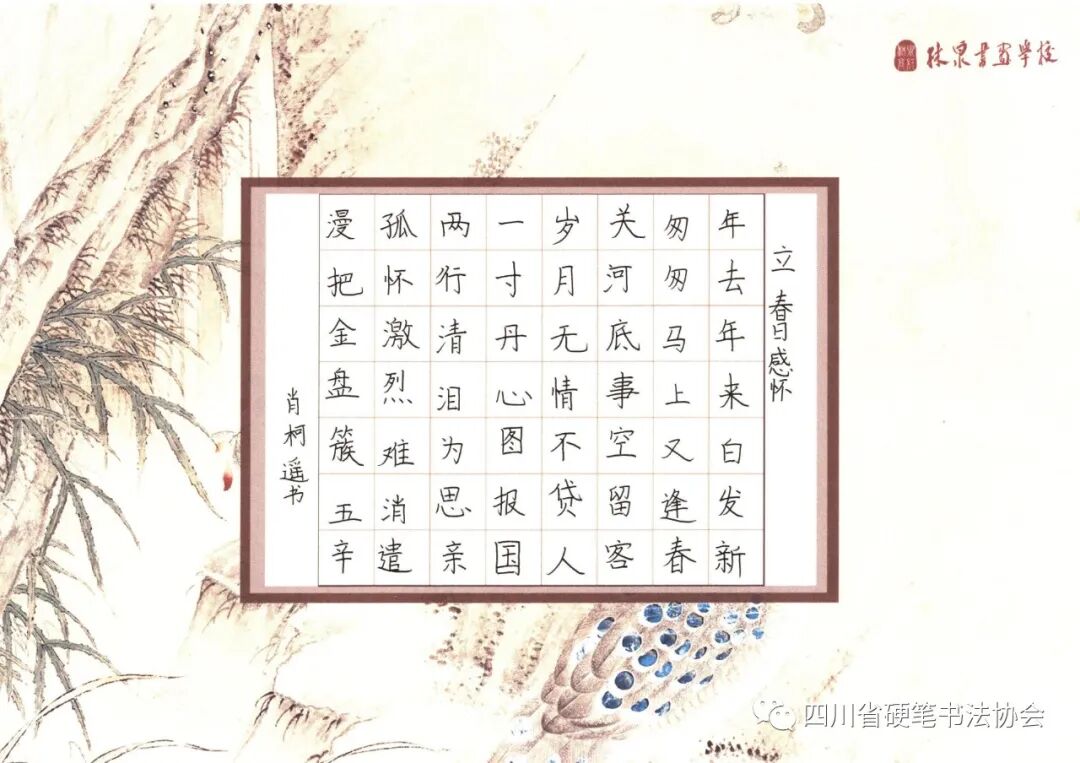 林泉书画学校
立春日感怀
年去年来白发新
匆匆马上又逢春
关河底事空留客
岁月无情不贷人
一寸丹心图报国
两行清泪为思亲
孤怀激烈难消遣
漫把金盘簇五辛
肖柯遥书
四川省硬笔书法协会